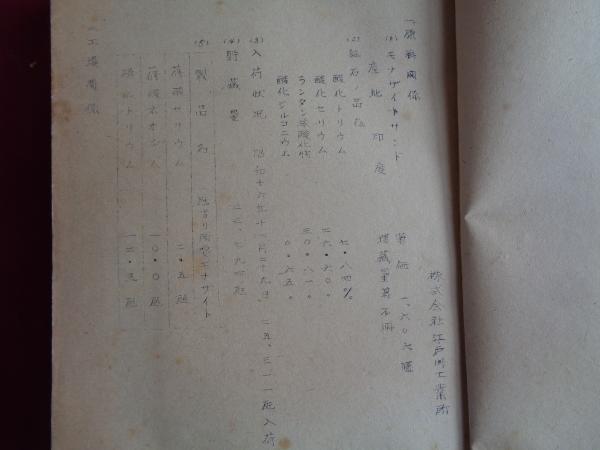 株式会社江戸川工業所
一、原料関係
(1) モナザイトサンド
産地 印度
単価 一、六〇六
埋蔵量 不明
(2) 鉱石ノ品位
酸化トリウム 七・八四%
酸化セリウム 二六・六〇〃
ランタン系酸化物 三〇・八一〃
酸化ジルコニウム 〇・六五〃
(3) 入荷状況 昭和十六年十一月二十九日、二五、三一一瓲入荷
(4) 貯蔵量 二二、七九四瓲
(5) 製品名 瓲当リ所要モナザイト
蓚酸セリウム 二・五瓲
蓚酸ネオジム 一〇・〇瓲
硝酸トリウム 一二・五瓲
一、工場関係